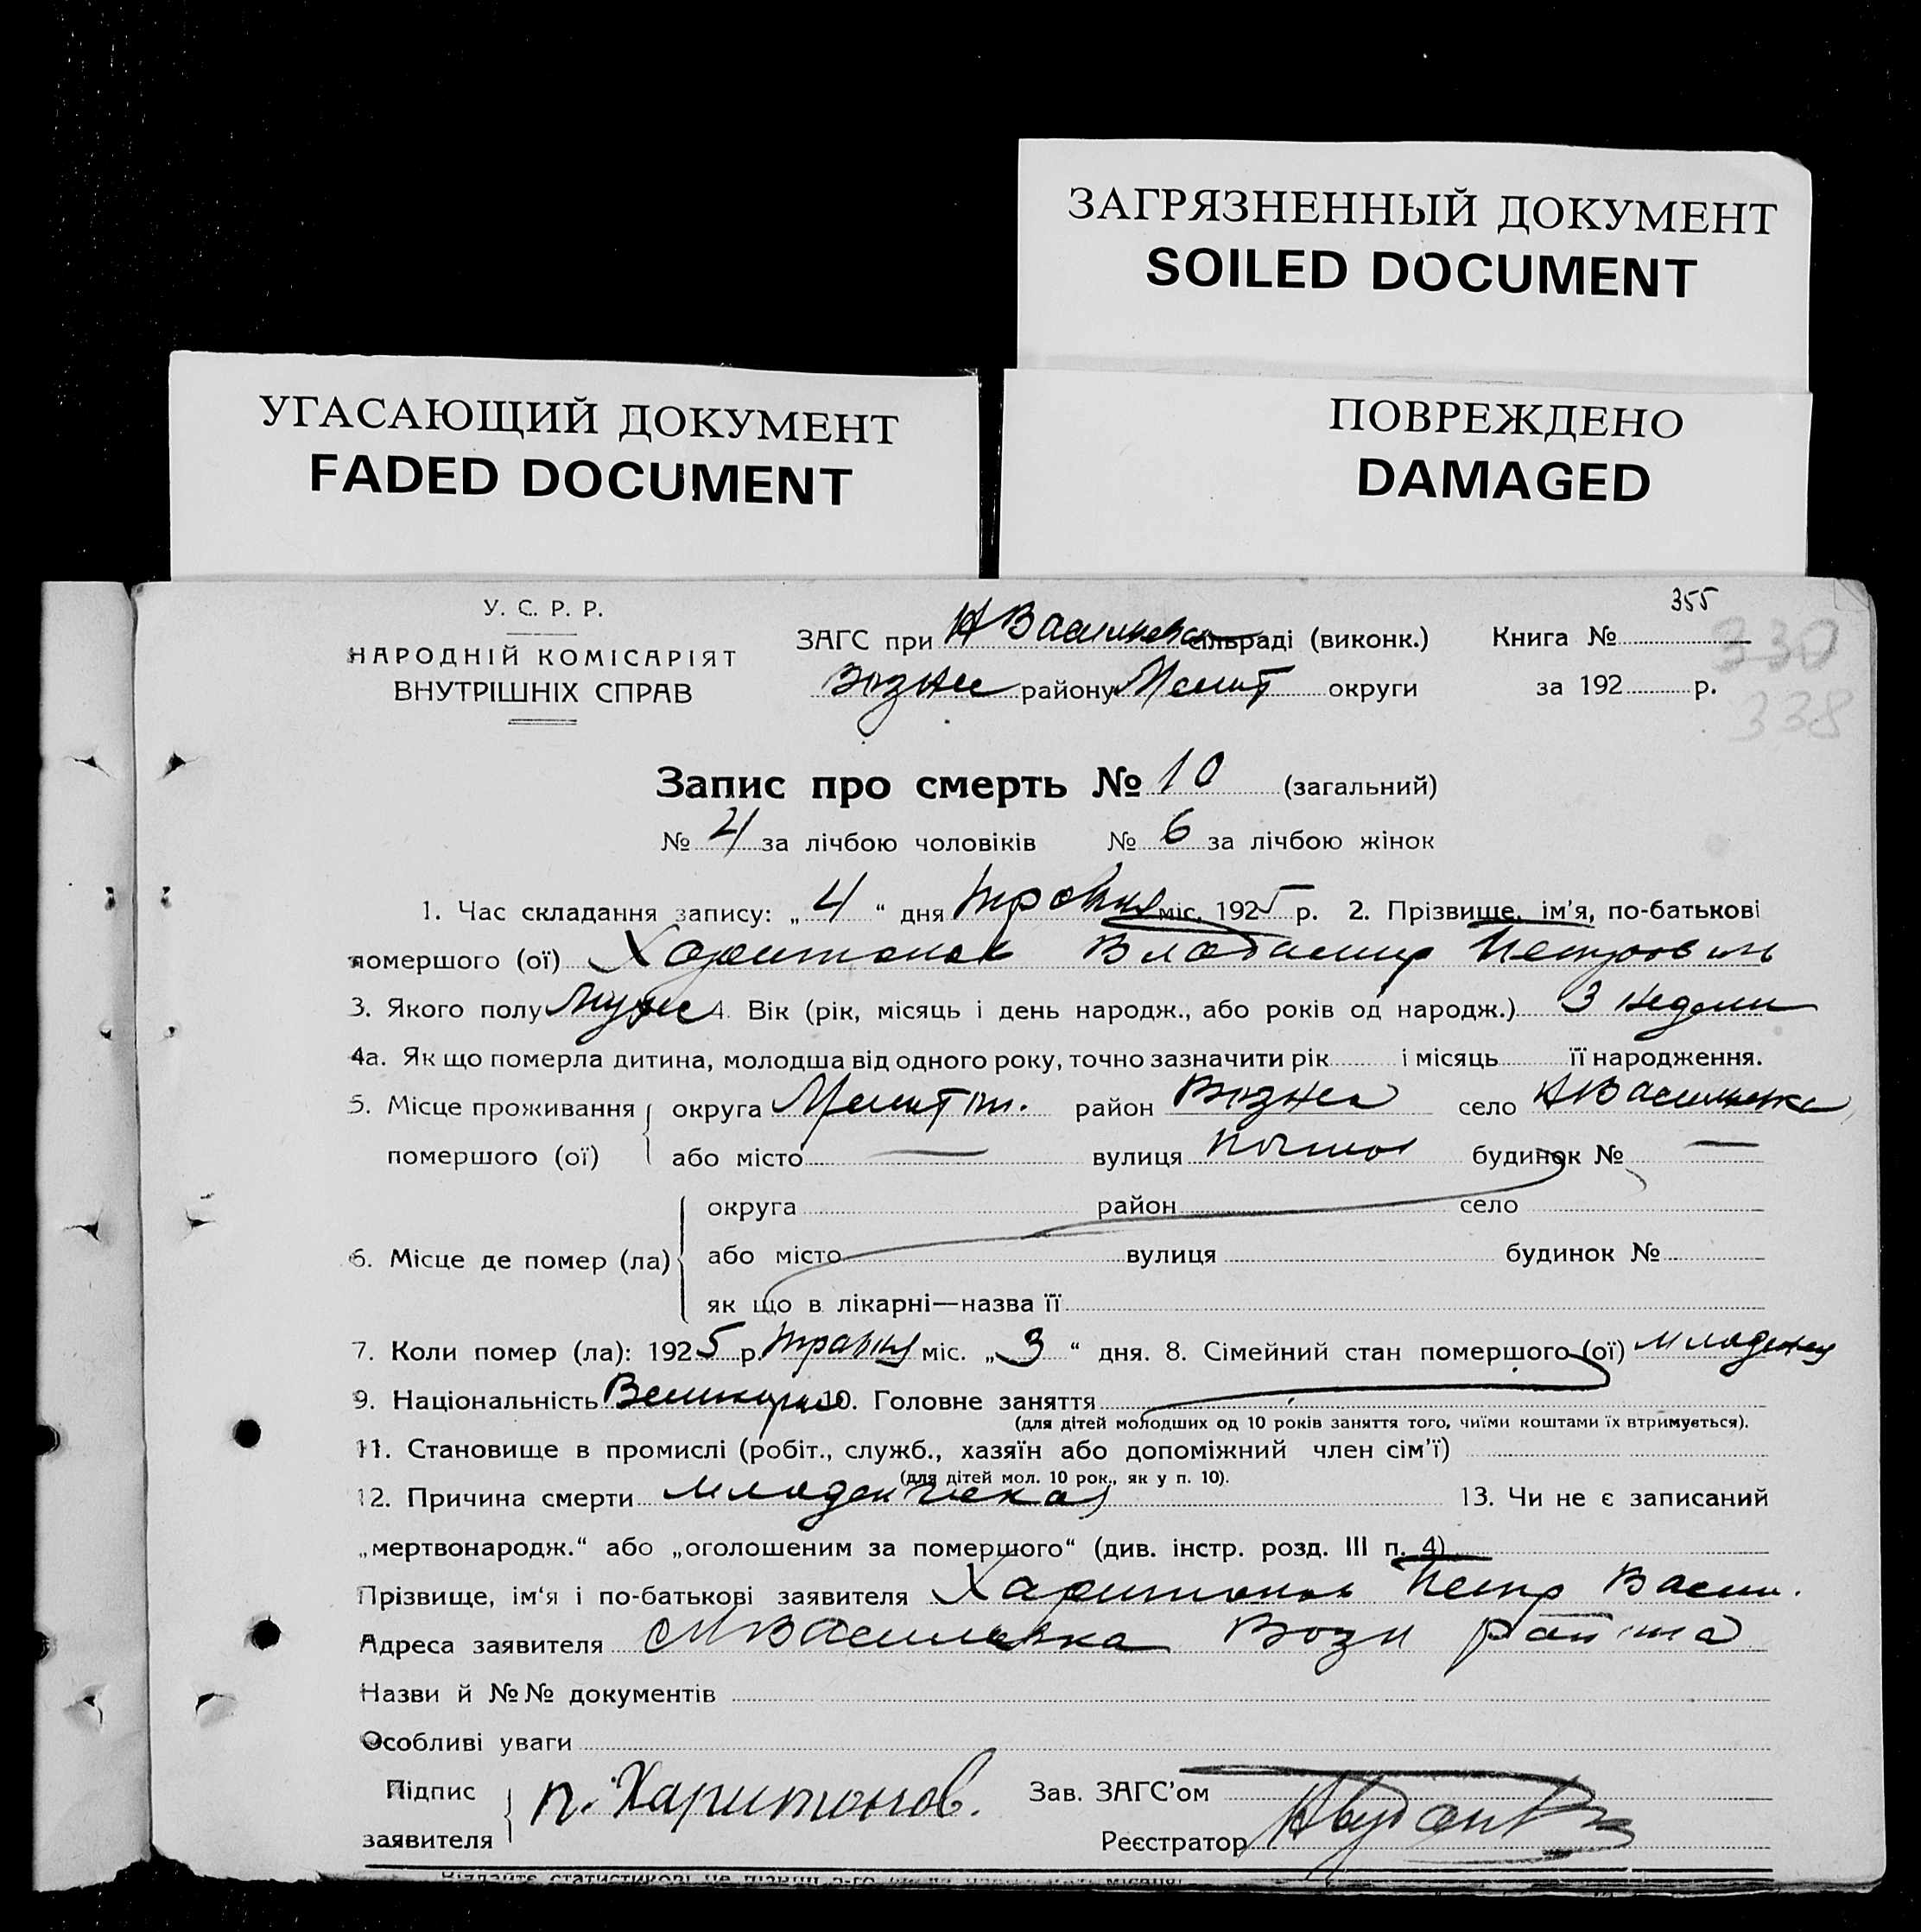 ЗАГРЯЗНЕННЫЙ ДОКУМЕНТ
SOILED DOCUMENT
УГАСАЮЩИЙ ДОКУМЕНТ
FADED DOCUMENT
ПОВРЕЖДЕНО
DAMAGED
355
330
338
У. С. Р. Р.
НАРОДНІЙ КОМІСАРІЯТ
ВНУТРІШНІХ СПРАВ
ЗАГС при сільраді (виконк.) Книга №
району Мелит округи за 192 р.
Запис про смерть № 10 (загальний)
№ 4 за лічбою чоловіків № 6 за лічбою жінок
1. Час складання запису: „ 4 “ дня травня міс. 1925 р. 2. Прізвище, ім'я, по-батькові
помершого (ої) Харитонов Владимир Петрович
3. Якого полу Муже 4. Вік (рік, місяць і день народж., або років од народж.) 3 недели
4а. Як що померла дитина, молодша від одного року, точно зазначити рік і місяць її народження.
5. Місце проживання округа район село
помершого (ої) або місто — вулиця будинок № —
округа район село
6. Місце де помер (ла) або місто вулиця будинок №
як що в лікарні—назва її
7. Коли помер (ла): 1925 р. травня міс. „ 3 “ дня. 8. Сімейний стан помершого (ої) младенец
9. Національність 10. Головне заняття
(для дітей молодших од 10 років заняття того, чиїми коштами їх втримується).
11. Становище в промислі (робіт., служб., хазяїн або допоміжний член сім'ї)
(для дітей мол. 10 рок., як у п. 10).
12. Причина смерти младенческая 13. Чи не є записаний
„мертвонародж.“ або „оголошеним за помершого“ (див. інстр. розд. III п. 4)
Прізвище, ім'я і по-батькові заявителя Харитонов Петр Васил.
Адреса заявителя Возн района
Назви й №№ документів
Особливі уваги
Підпис заявителя п. Харитонов. Зав. ЗАГС'ом
Реєстратор